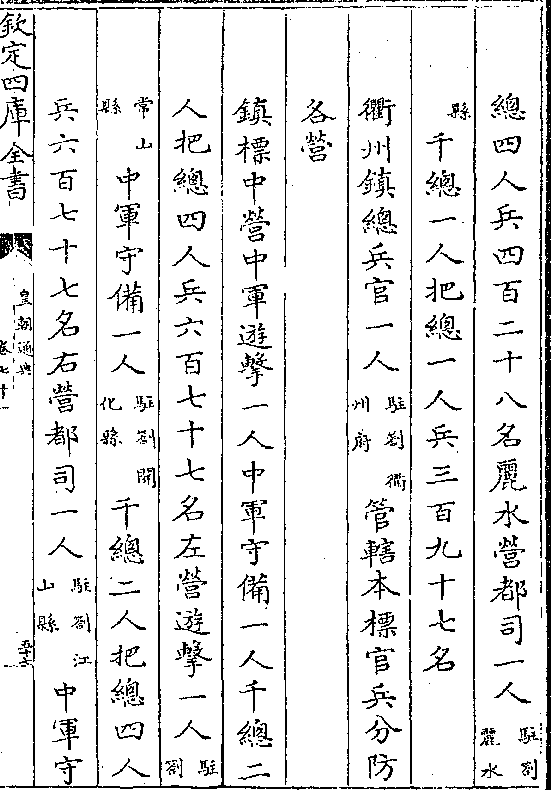 總四人兵四百二十八名麗水營都司一人駐劄麗水
縣千總一人把總一人兵三百九十七名
衢州鎮總兵官一人駐劄衢州府管轄本標官兵分防
各營
鎮標中營中軍遊擊一人中軍守備一人千總二
人把總四人兵六百七十七名左營遊擊一人駐劄
常山縣中軍守備一人駐劄開化縣千總二人把總四人
兵六百七十七名右營都司一人駐劄江山縣中軍守
欽定四庫全書
皇朝通典
卷七十